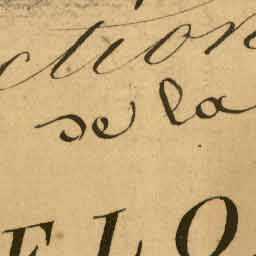 ction
de la
FLO